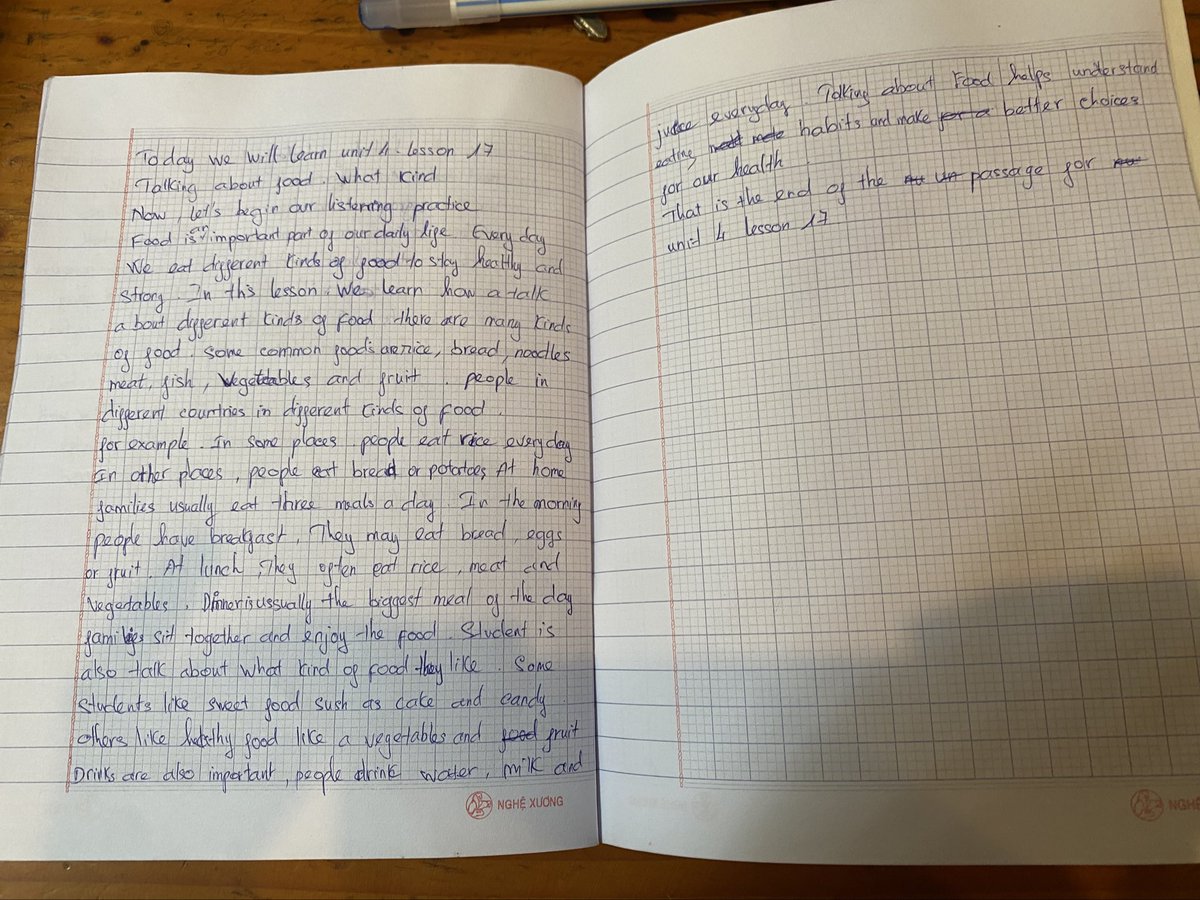 Today we will learn unit 4. lesson 17
Talking about food. What kind
Now, let's begin our listening practice
Food is an important part of our daily life Every day
We eat different kinds of food to stay healthy and
strong. In this lesson. We learn how a talk
about different kinds of food there are many kinds
of food. some common foods are rice, bread, noodles
meat, fish, vegetables and fruit. people in
different countries in different kinds of food.
for example. In some places. people eat rice everyday
In other places, people eat bread or potatoes, At home
families usually eat three meals a day. In the morning
people have breakfast, They may eat bread, eggs
or fruit. At lunch, They often eat rice, meat and
vegetables. Dinner is ussually the biggest meal of the day
families sit together and enjoy the food. Student is
also talk about what kind of food they like. Some
students like sweet food sush as cake and candy.
others like healthy food like a vegetables and food fruit
Drinks are also important, people drink water, milk and
NGHỆ XƯƠNG
everyday. Talking about Food helps understand
eating habits and make better choices
for our health
That is the end of the passage for
unit 4 lesson 17